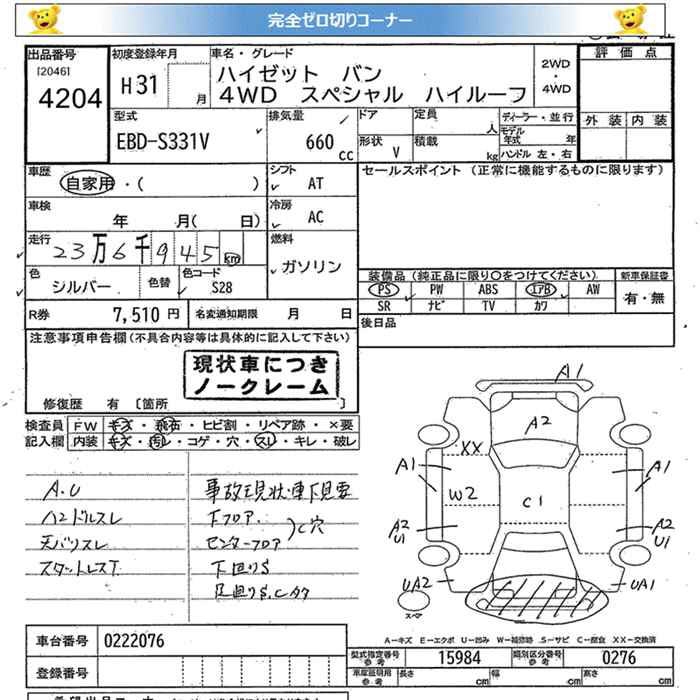 完全ゼロ切りコーナー
出品番号
[2046]
4204
初度登録年月
H31
月
車名・グレード
ハイゼット バン
4WD スペシャル ハイルーフ
2WD
・
4WD
評価点
外装 内装
型式
EBD-S331V
排気量
660
cc
ドア
定員
人
ディーラー・並行
モデル
年式 年
形状
V
積載
kg
ハンドル 左・右
車歴
自家用・( )
シフト
AT
セールスポイント (正常に機能するものに限ります)
車検
年 月( 日)
冷房
AC
走行
23万6千945km
燃料
ガソリン
色
シルバー
色替
色コード
S28
装備品 (純正品に限り○をつけてください)
新車保証書
PS PW ABS エアB AW
SR ナビ TV カワ
有・無
R券 7,510 円
名変通知期限 月 日
後日品
注意事項申告欄(不具合内容等は具体的に記入して下さい)
現状車につき
ノークレーム
修復歴 有 [箇所 ]
検査員
記入欄
FW キズ・飛石・ヒビ割・リペア跡・×要
内装 キズ・汚レ・コゲ・穴・スレ・キレ・破レ
A.U
ハンドルスレ
天バリスレ
スタットレスT.
事故現状車下見要
下フロア.
センターフロア
)C穴
下回りS
足回りS.C大
A1
A2
XX
A1
A1
W2
C1
A2
U1
A2
U1
UA2
S1
UA1
スペア
A-キズ E-エクボ U-凹み W-補修跡 S-サビ C-腐食 XX-交換済
車台番号 0222076
登録番号
型式指定番号
参考
15984
類別区分番号
参考
0276
車庫証明用
参考
長さ cm
幅 cm
高さ cm